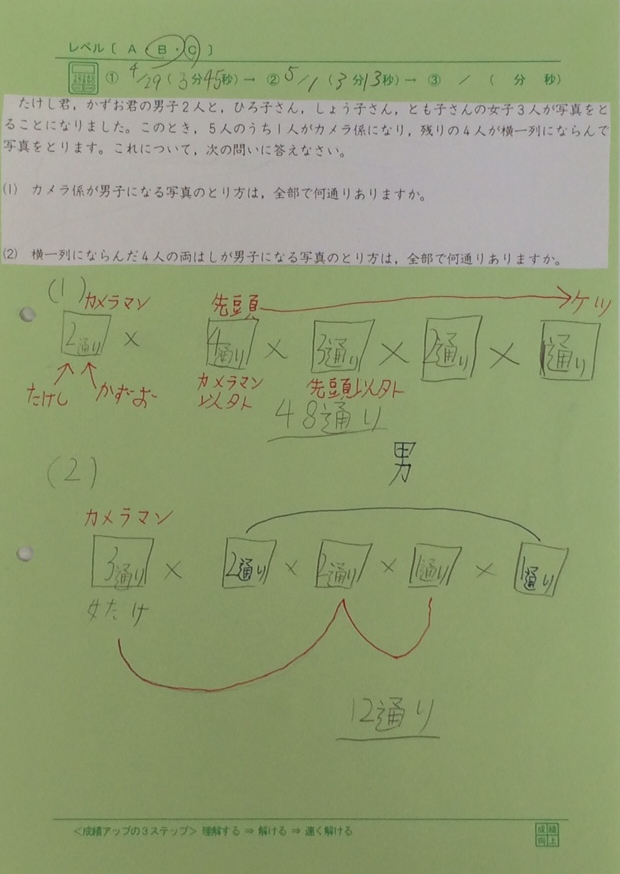 レベル〔 A ・ B ・ C 〕
① 4/29 ( 3 分 45 秒) → ② 5/1 ( 3 分 13 秒) → ③ / ( 分 秒)
たけし君，かずお君の男子２人と，ひろ子さん，しょう子さん，とも子さんの女子３人が写真をと
ることになりました。このとき，５人のうち１人がカメラ係になり，残りの４人が横一列にならんで
写真をとります。これについて，次の問いに答えなさい。
(1) カメラ係が男子になる写真のとり方は，全部で何通りありますか。
(2) 横一列にならんだ４人の両はしが男子になる写真のとり方は，全部で何通りありますか。
(1) カメラマン 先頭 ケツ
2通り × 4通り × 3通り × 2通り × 1通り
たけし かずお カメラマン以外 先頭以外
48通り
(2) 男
カメラマン
3通り × 2通り × 2通り × 1通り × 1通り
女だけ
12通り
＜成績アップの３ステップ＞ 理解する ⇒ 解ける ⇒ 速く解ける
成績
向上